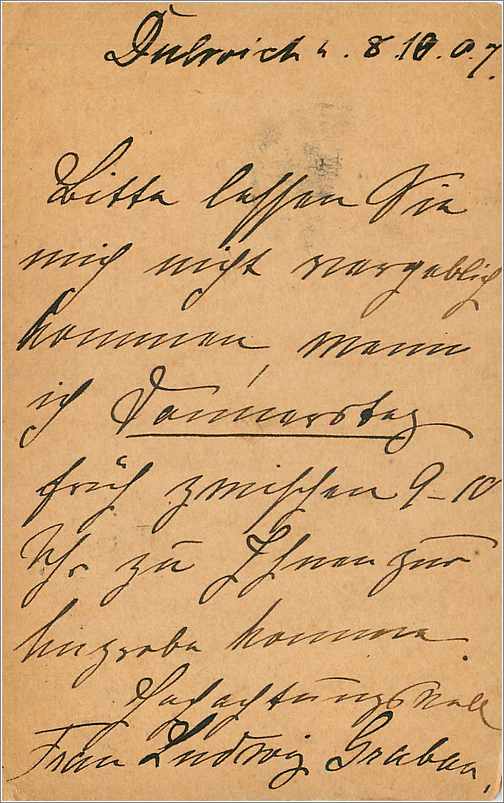 8.10.07.
Bitte lassen Sie
mich nicht vergeblich
kommen, wenn
ich Donnerstag
früh zwischen 9-10
Uhr zu Ihnen zur
Anprobe komme.
Hochachtungsvoll
Frau Ludwig Grabau,